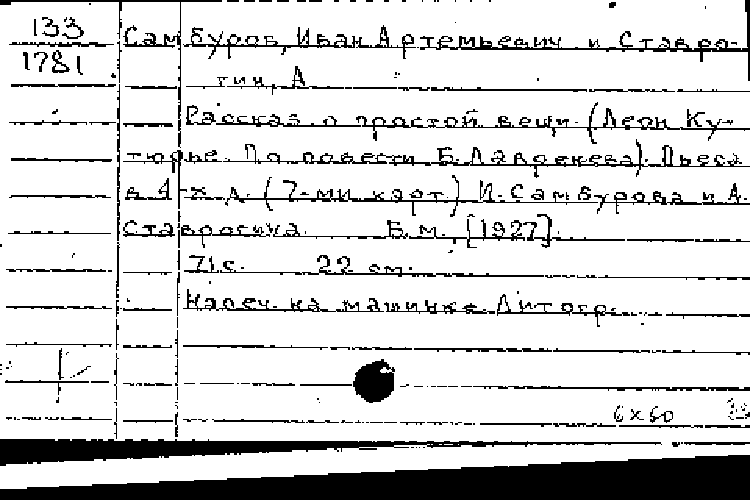 133
1781
Самбуров, Иван Артемьевич и Ставро-
гин, А
Рассказ о простой вещи. (Леон Ку-
тюрье. По повести Б. Лавренева). Пьеса
в 4-х д. (7-ми карт.) И. Самбурова и А.
Ставрогина. Б.м., [1927].
71 с. 22 см.
Напеч. на машинке. Литогр.
6х60